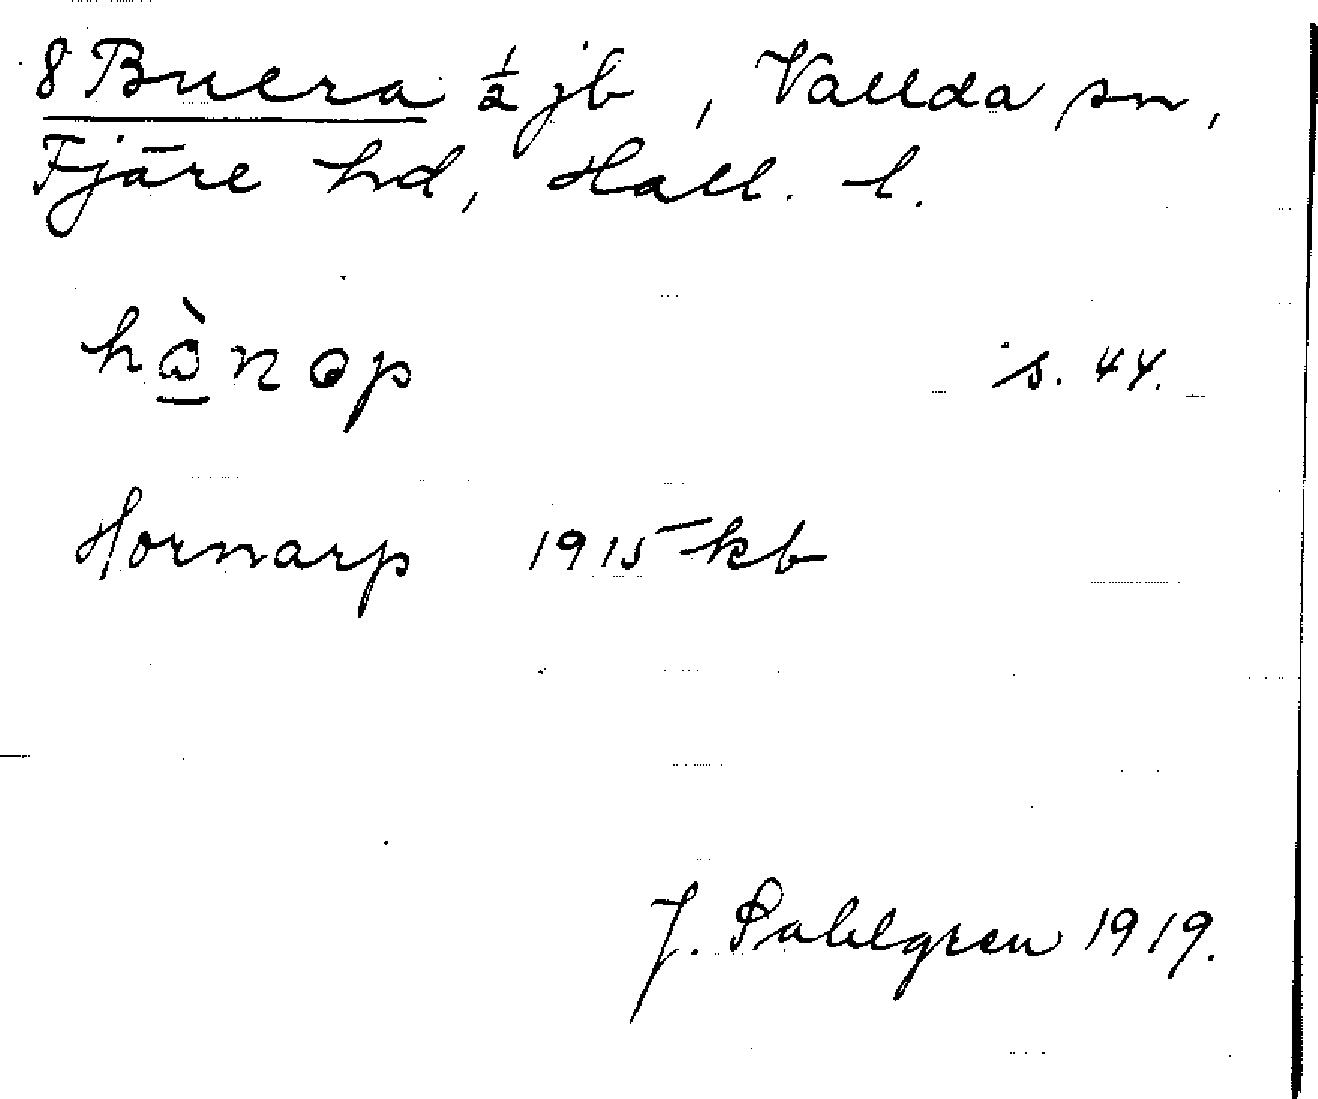 8 Buera ½ jb, Vallda sn,
Fjäre hd, Hall. l.
hànəp s. 44.
Hornarp 1915 kb
J. Sahlgren 1919.